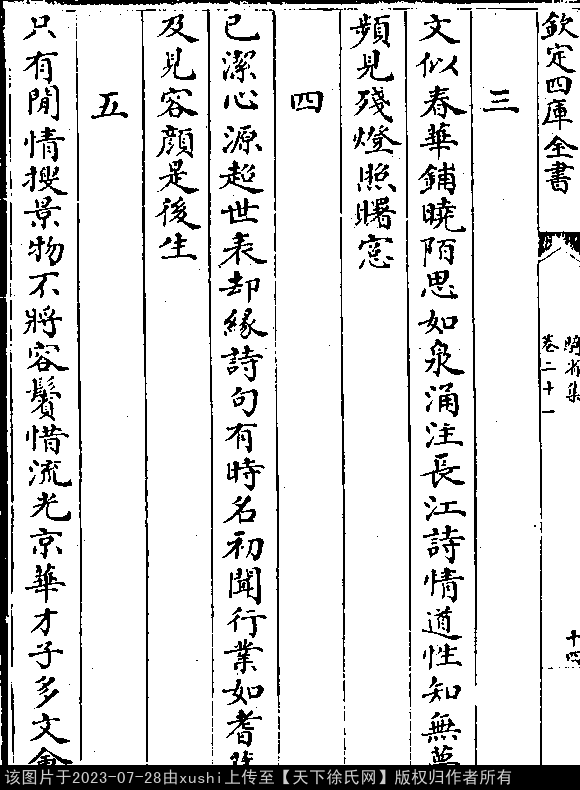 欽定四庫全書
卷二十一
十四
三
文似春華鋪曉陌思如泉涌注長江詩情道性知無夢
頻見殘燈照曙窓
四
已潔心源超世表却緣詩句有時名初聞行業如耆
及見容顔是後生
五
只有閒情搜景物不將容鬢惜流光京華才子多文會
该图片于2023-07-28由xushi上传至【天下徐氏网】版权归作者所有